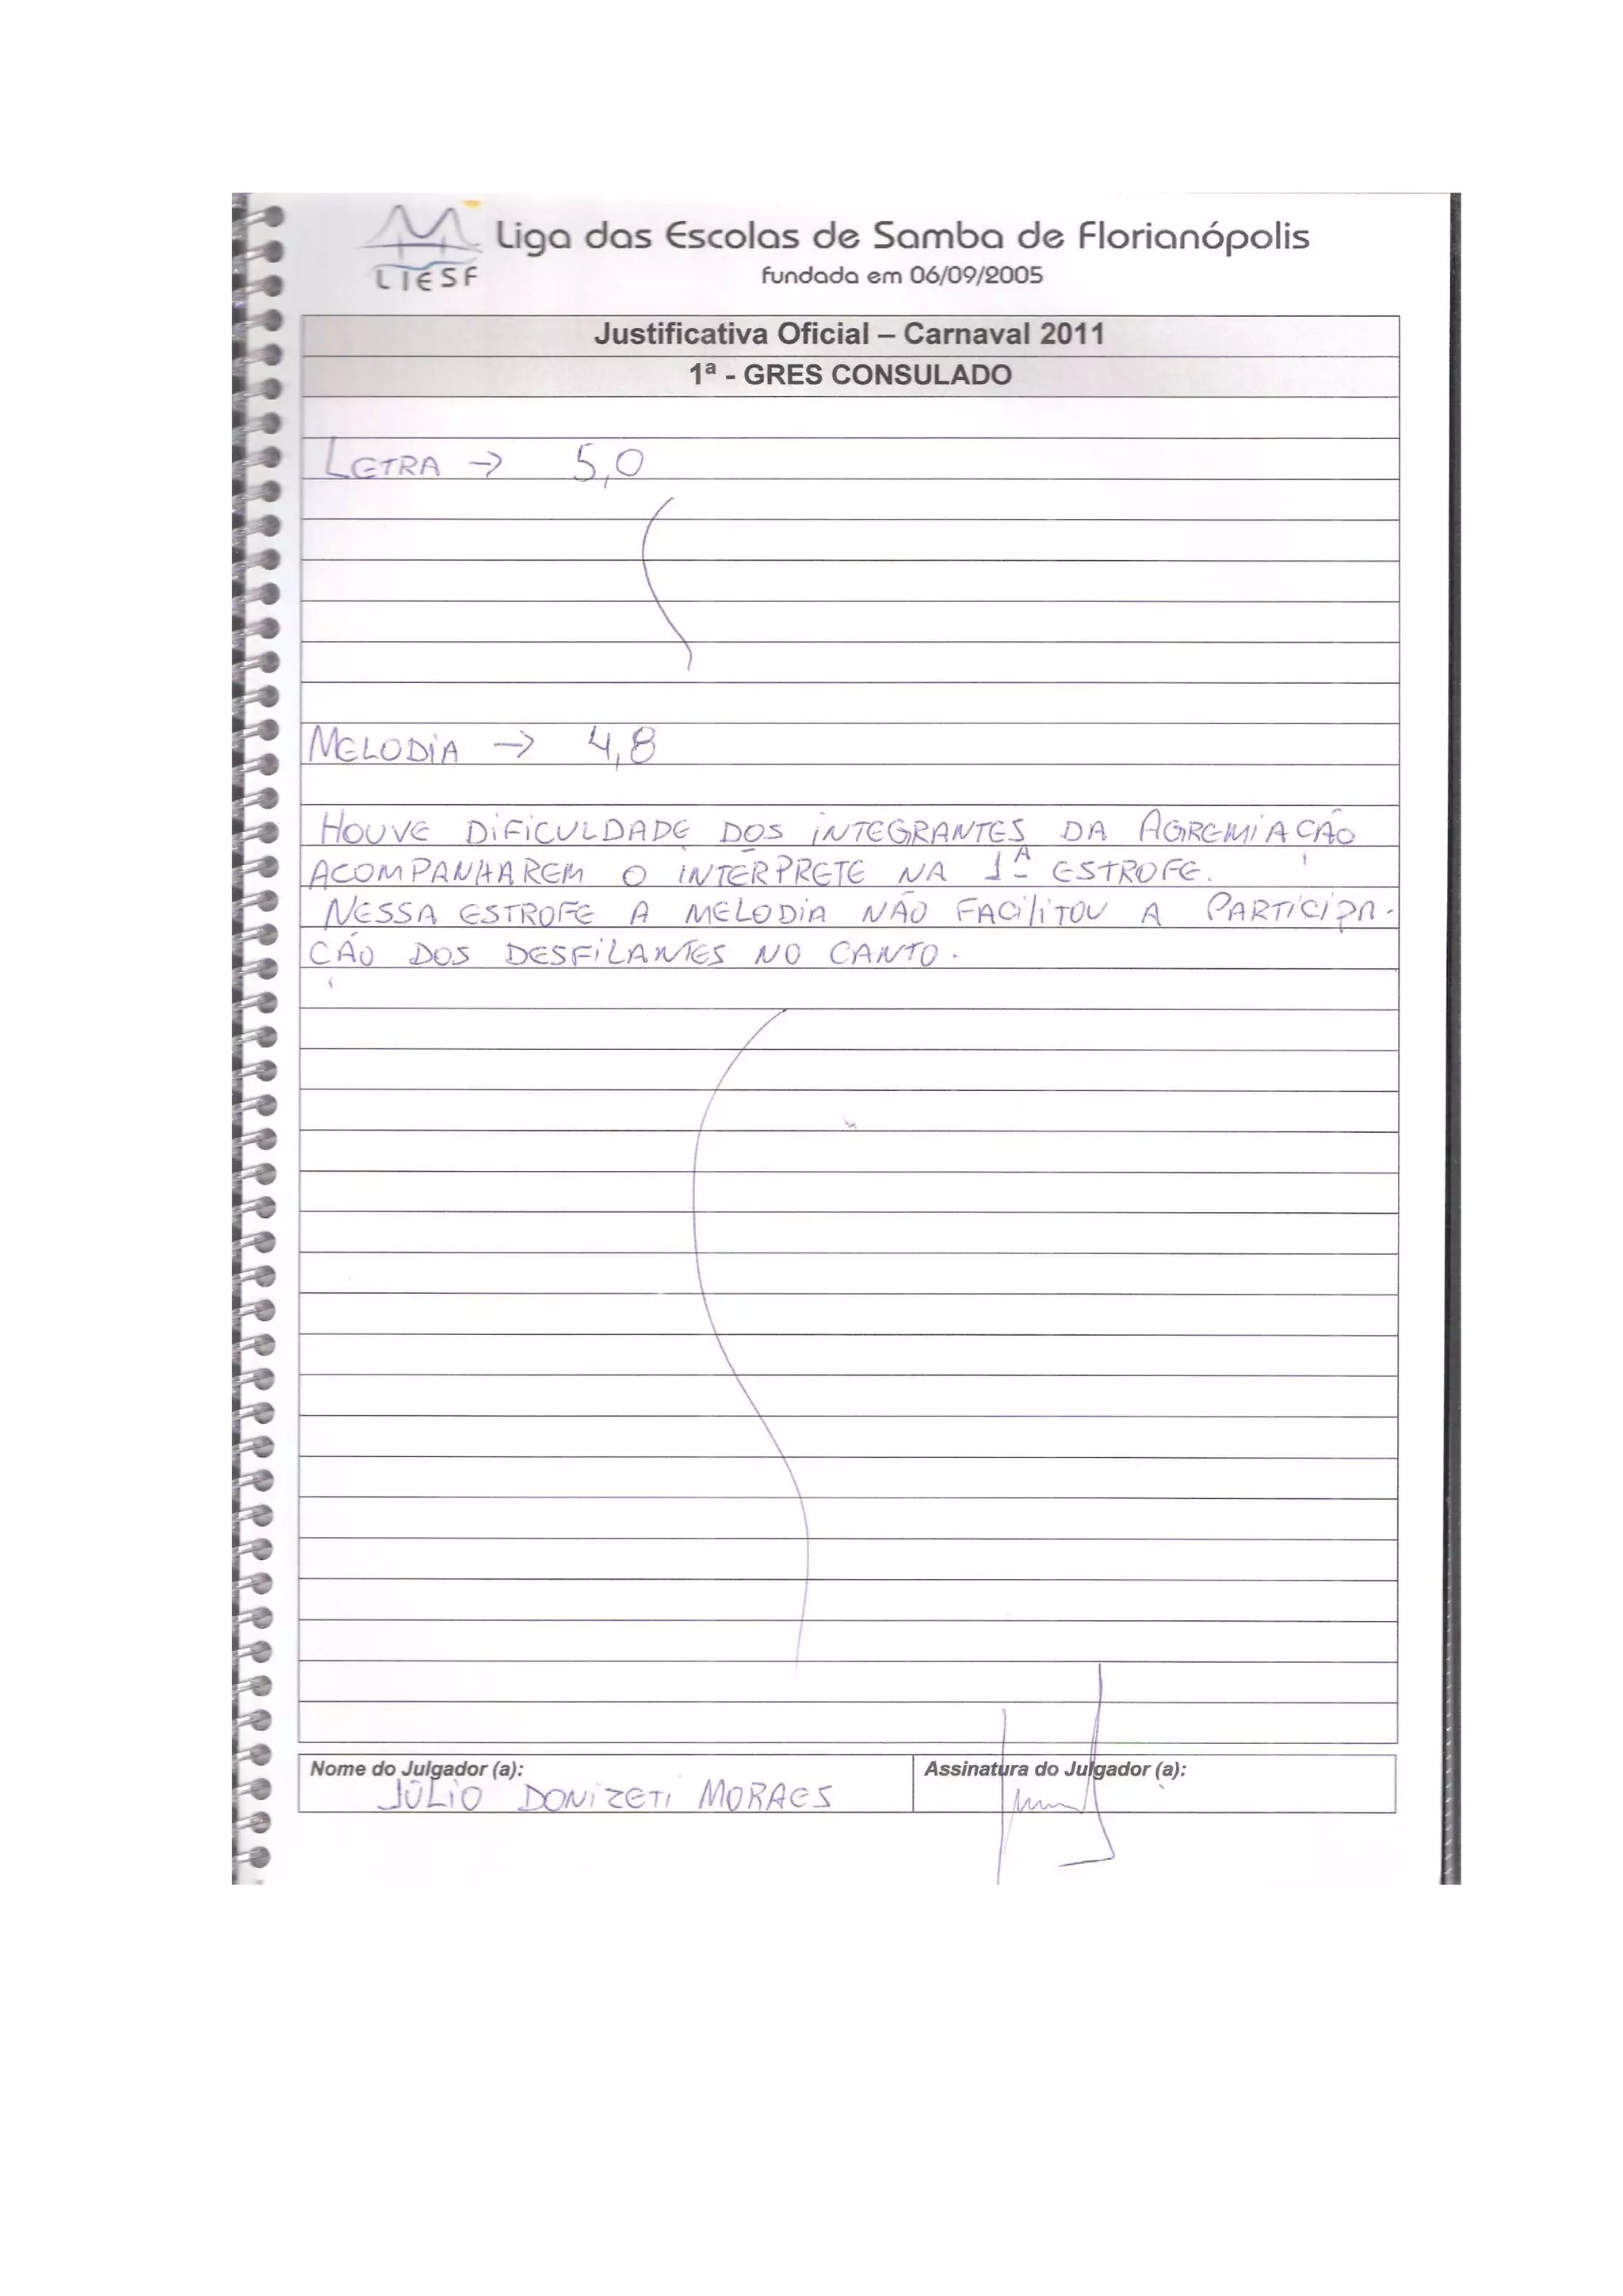 LIESF
Liga das Escolas de Samba de Florianópolis
fundada em 06/09/2005
Justificativa Oficial – Carnaval 2011
1ª - GRES CONSULADO
LETRA → 5,0
MELODIA → 4,8
HOUVE DIFICULDADE DOS INTEGRANTES DA AGREMIAÇÃO
ACOMPANHAREM O INTÉRPRETE NA 1ª ESTROFE.
NESSA ESTROFE A MELODIA NÃO FACILITOU A PARTICIPA-
ÇÃO DOS DESFILANTES NO CANTO.
Nome do Julgador (a):
JÚLIO DONIZETI MORAES
Assinatura do Julgador (a):